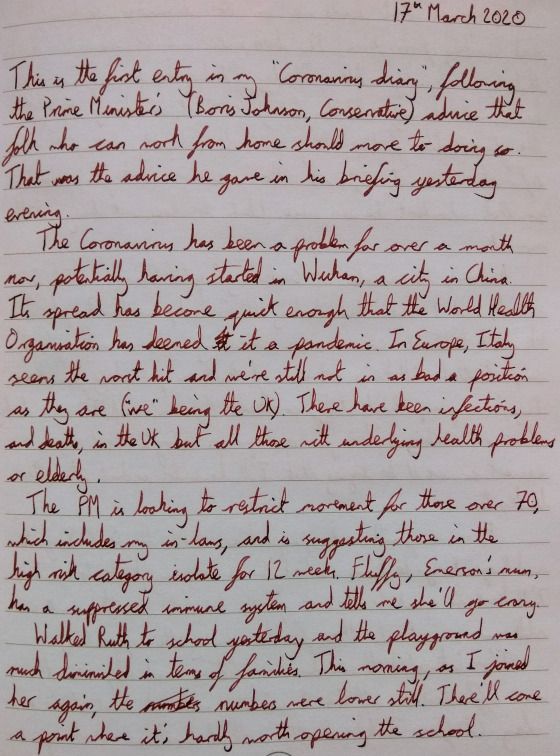 17th March 2020
This is the first entry in my "Coronavirus diary", following
the Prime Minister's (Boris Johnson, Conservative) advice that
folk who can work from home should move to doing so.
That was the advice he gave in his briefing yesterday
evening.
The Coronavirus has been a problem for over a month
now, potentially having started in Wuhan, a city in China.
Its spread has become quick enough that the World Health
Organisation has deemed it a pandemic. In Europe, Italy
seems the worst hit and we're still not in as bad a position
as they are ("we" being the UK). There have been infections,
and deaths, in the UK but all those with underlying health problems
or elderly.
The PM is looking to restrict movement for those over 70,
which includes my in-laws, and is suggesting those in the
high risk category isolate for 12 weeks. Fluffy, Emerson's mum,
has a suppressed immune system and tells me she'll go crazy.
Walked Ruth to school yesterday and the playground was
much diminished in terms of families. This morning, as I joined
her again, the numbers numbers were lower still. There'll come
a point where it's hardly worth opening the school.